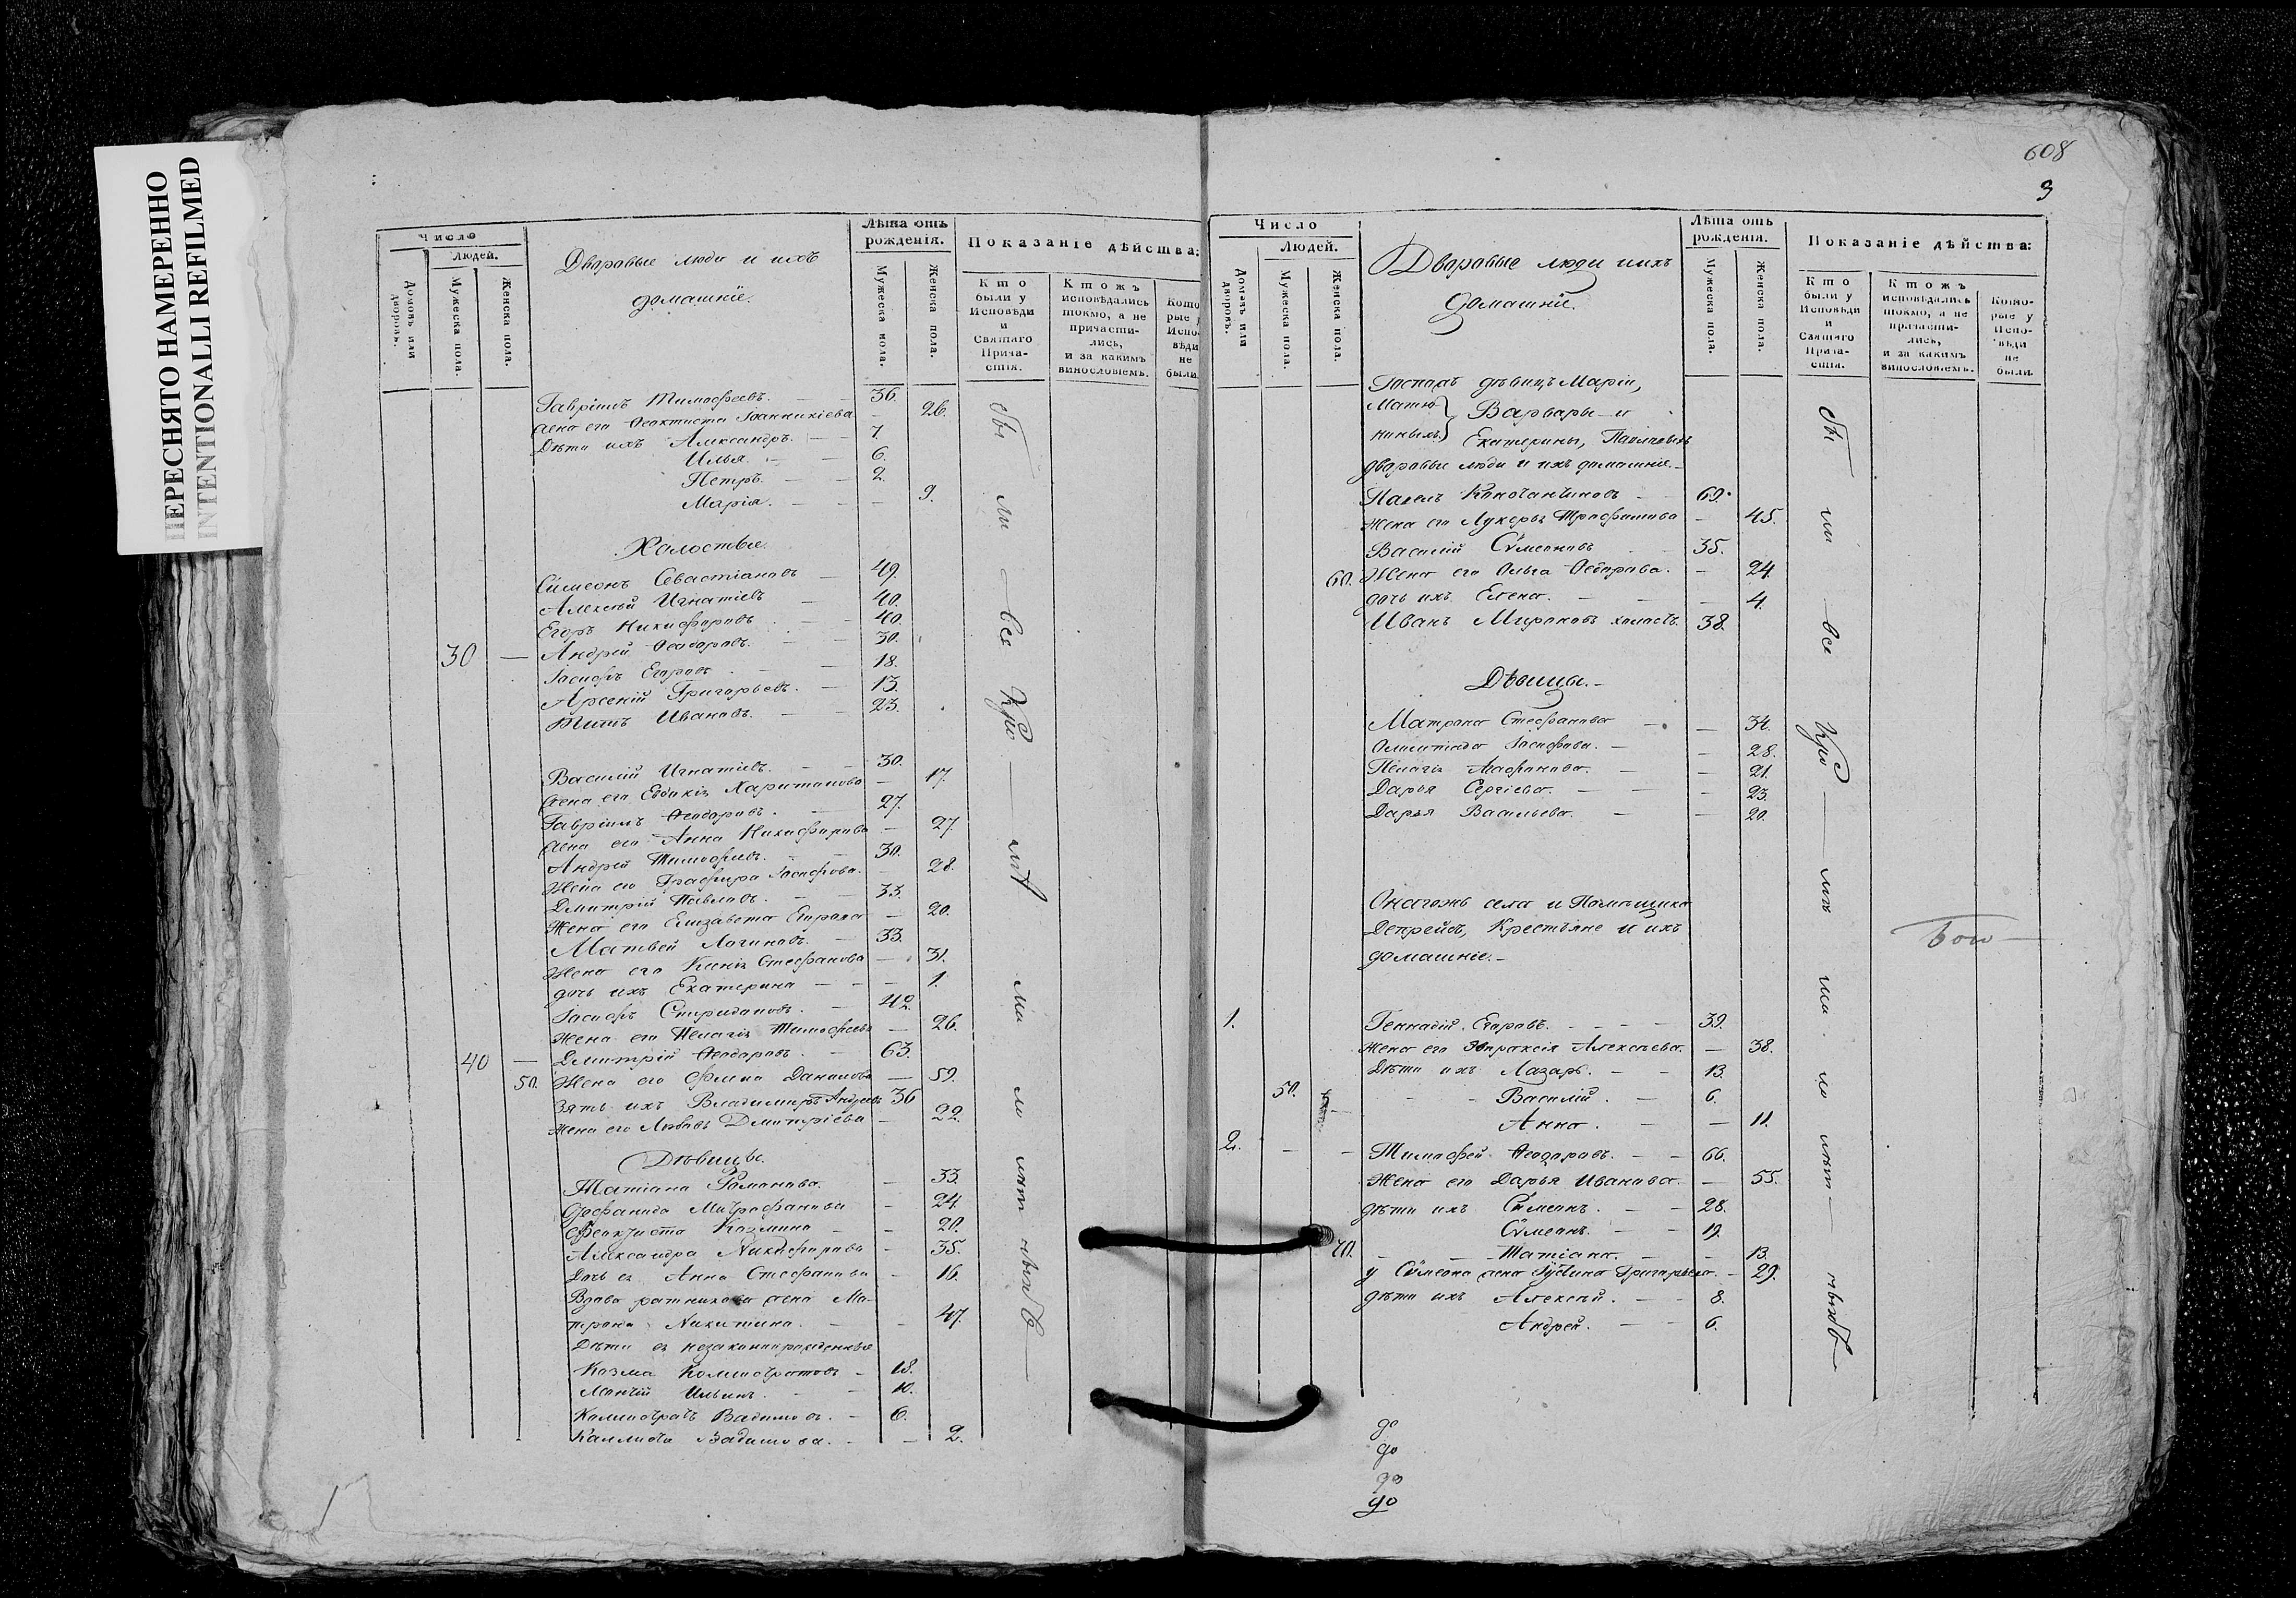 ПЕРЕСНЯТО НАМЕРЕННО
INTENTIONALLI REFILMED
Число
Людей.
Домовъ или дворовъ.
Мужеска пола.
Женска пола.
Дваровые люди и ихъ
домашніе.
Лѣта отъ рожденія.
Мужеска пола.
Женска пола.
Показаніе дѣйства:
Кто были у Исповѣди и Святаго Прича-стія.
Ктожъ исповѣдались токмо, а не причасти-лись, и за какимъ винословіемъ.
были.
Гавріилъ Тимофеевъ. 36.
жена его Феоктиста Іоанникіева 26.
Дѣти ихъ Александръ. 7.
Илья. 6.
Петръ. 2.
Марія. 9.
Халостые.
Симеонъ Севастіановъ 49.
Алексѣй Игнатіевъ 40.
Егоръ Никифоровъ 40.
30 Андрей Феодоровъ. 30.
Іосифъ Егоровъ 18.
Арсеній Григорьевъ. 13.
Титъ Ивановъ. 23.
Василій Игнатіевъ. 30.
жена его Евдокія Харитонова 17.
Гавріилъ Феодоровъ. 27.
жена его Анна Никифорова 27.
Андрей Тимофеевъ. 30.
Жена его Іосифова. 28.
Дмитрій Павловъ. 33.
Жена его Елизавета Егорова 20.
Матвей Логиновъ. 33.
Жена его Ксенія Стефанова 31.
дочь ихъ Екатерина 1.
Іосифъ Спиридоновъ. 42.
Жена его Пелагія Тимофеева 26.
40 Дмитрій Феодоровъ. 63.
50. Жена его Данилова 59.
Зять ихъ Владимиръ Андреевъ 36
Жена его Любовь Дмитріева 22.
Дѣвицы.
Татіана Романова. 33.
Митрофанова 24.
Феоктиста Козмина 20.
Александра Никифорова 35.
Дочь ея Анна Стефанова 16.
Вдова ратникова жена Ма-
трона Никитина. 47.
Дѣти ея незаконнорожденные
Козма 18.
Ильинъ. 10.
6.
2.
608
3
Число
Людей.
Домовъ или дворовъ.
Мужеска пола.
Женска пола.
Дваровые люди и ихъ
домашніе.
Лѣта отъ рожденія.
Мужеска пола.
Женска пола.
Показаніе дѣйства:
Кто были у Исповѣди и Святаго Прича-стія.
Ктожъ исповѣдались токмо, а не причасти-лись, и за какимъ винословіемъ.
Кото-рые у Испо-вѣди не были.
Госпожъ дѣвицъ Маріи,
Матю- Варвары и
ниныхъ Екатерины, Павловыхъ
дваровые люди и ихъ домашніе.
Павелъ 69.
Жена его Лукерья Трофимова 45.
Василій Сѵмеоновъ 35.
60. Жена его Ольга Феодорова. 24.
дочь ихъ Елена. 4.
Иванъ Мироновъ холостъ. 38.
Дѣвицы.
Матрона Стефанова 34.
Олимпіада Іосифова. 28.
Пелагія 21.
Дарья Сергіева. 23.
Дарья Васильева. 20.
Онагожъ села и Помѣщика
Депрейсъ, Крестьяне и ихъ
домашніе.
1. Геннадій Егоровъ. 39.
Жена его Алексѣева. 38.
Дѣти ихъ Лазарь. 13.
50. Василій. 6.
Анна. 11.
2. Тимофей Феодоровъ. 66.
Жена его Дарья Иванова. 55.
дѣти ихъ Сѵмеонъ. 28.
Сѵмеонъ. 19.
70. Татіана. 13.
у Сѵмеона жена Григорьева. 29.
дѣти ихъ Алексѣй. 8.
Андрей. 6.
до
до
до
до